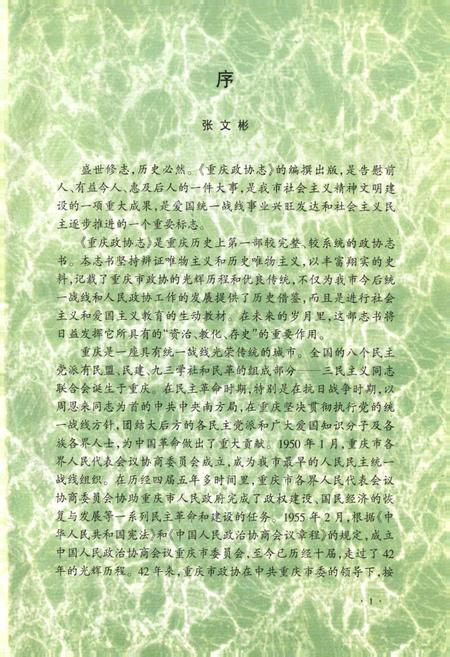 序
张文彬
盛世修志，历史必然。《重庆政协志》的编撰出版，是告慰前
人、有益今人、惠及后人的一件大事，是我市社会主义精神文明建
设的一项重大成果，是爱国统一战线事业兴旺发达和社会主义民
主逐步推进的一个重要标志。
《重庆政协志》是重庆历史上第一部较完整、较系统的政协志
书。本志书坚持辩证唯物主义和历史唯物主义，以丰富翔实的史
料，记载了重庆市政协的光辉历程和优良传统，不仅为我市今后统
一战线和人民政协工作的发展提供了历史借鉴，而且是进行社会
主义和爱国主义教育的生动教材。在未来的岁月里，这部志书将
日益发挥它所具有的“资治、教化、存史”的重要作用。
重庆是一座具有统一战线光荣传统的城市。全国的八个民主
党派有民盟、民建、九三学社和民革的组成部分——三民主义同志
联合会诞生于重庆。在民主革命时期，特别是在抗日战争时期，以
周恩来同志为首的中共中央南方局，在重庆坚决贯彻执行党的统
一战线方针，团结大后方的各民主党派和广大爱国知识分子及各
族各界人士，为中国革命做出了重大贡献。1950年1月，重庆市各
界人民代表会议协商委员会成立，成为我市最早的人民民主统一
战线组织。在历经四届五年多时间里，重庆市各界人民代表会议
协商委员会协助重庆市人民政府完成了政权建设、国民经济的恢
复与发展等一系列民主革命和建设的任务。1955年2月，根据《中
华人民共和国宪法》和《中国人民政治协商会议章程》的规定，成立
中国人民政治协商会议重庆市委员会，至今已历经十届，走过了42
年的光辉历程。42年来，重庆市政协在中共重庆市委的领导下，按
·1·